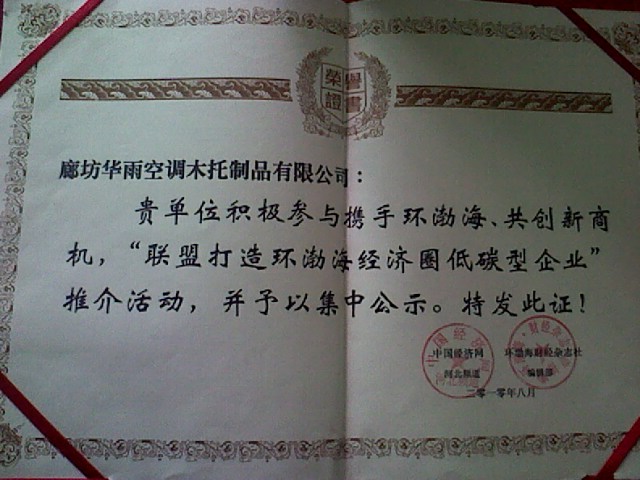 榮譽
證書
廊坊华雨空调木托制品有限公司：
贵单位积极参与携手环渤海、共创新商
机，“联盟打造环渤海经济圈低碳型企业”
推介活动，并予以集中公示。特发此证！
中国经济网 环渤海财经杂志社
河北频道 编辑部
二零一零年八月